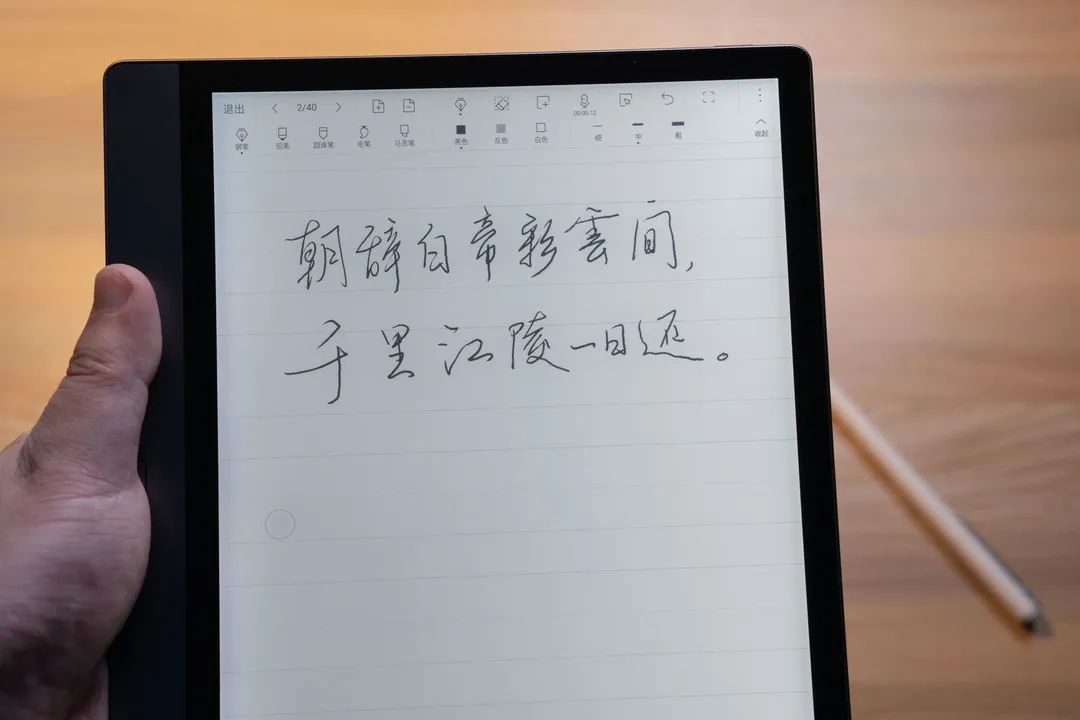 退出 2/40 00:00:12
钢笔 铅笔 圆珠笔 毛笔 马克笔 黑色 灰色 白色 细 中 粗 收起
朝辞白帝彩雲间,
千里江陵一日还。